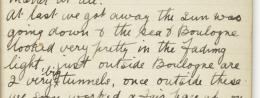 At last we got away the sun was
going down & the sea & Boulogne
looked very pretty in the fading
light, just outside Boulogne are
2 very big tunnels, once outside these
we soon worked a